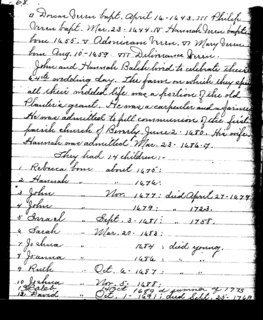 68.
II Dorcas Veren bapt. April 16-1643. III Philip
Veren bapt. Mar. 23-1644. IV Hannah Veren bapt.
June 1655. V Adoniram Veren. VI Mary Veren
bapt. Aug. 10-1659. VII Deliverance Veren.
John and Hannah Balch lived to celebrate their
wedding day. The farm on which they spent
all their wedded life was a portion of the old
Planter's grant. He was a carpenter and a farmer.
He was admitted to full communion of the first
parish church of Beverly June 2-1680. His wife
Hannah was admitted Mar. 23-1686-7.
They had 14 children:-
1. Rebecca born about 1675:
2. Hannah " " 1676:
3. John " Nov. 1677: died April 27-1679.
4. John " 1679: " " 1723.
5. Israel " Sept. 3-1681: " 1758.
6. Sarah " Mar. 20-1683:
7. Joshua " 1684: died young.
8. Joanna " 1686: " "
9. Ruth " Oct. 4-1687: "
10. Joshua " Nov. 5-1688:
11. Caleb " Oct. 1689
12. David " Oct. 1-1691: died Sept. 25-1769